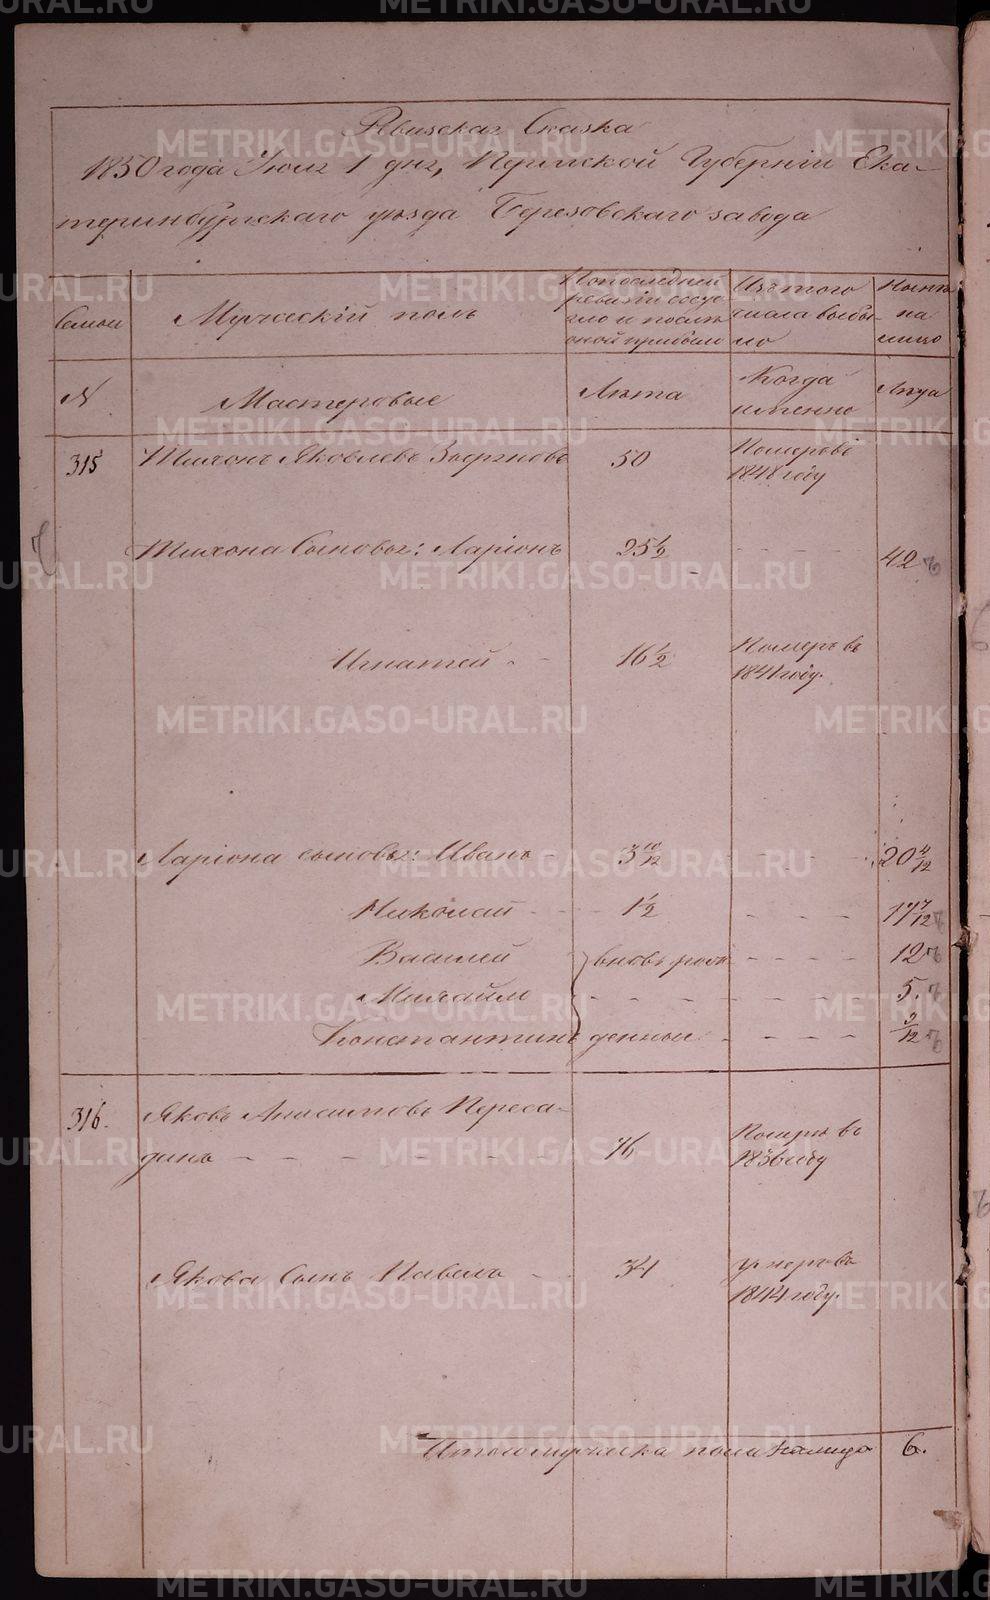 Ревизская Сказка
1850 года Июля 1 дня, Пермской Губернiи Ека-
теринбургскаго уѣзда Березовскаго завода
Семьи
Мужескiй полъ
По последней
ревизiи состо-
яло и послѣ
оной прибыло
Изъ того
числа выбы-
ло
Нынѣ
на
лицо
№
Мастеровые
Лѣта
Когда
именно
Лѣта
315
Тихонъ Яковлевъ
50
Померъ въ
1848 году
Тихона Сыновья: Ларiонъ
25 1/2
42
Игнатей
16 1/2
Померъ въ
1841 году.
Ларiона сыновья: Иванъ
3 10/12
20 4/12
Николай
1 1/2
17 7/12
Василий
вновь рож-
12
Михайло
5.
Константинъ
денные
9/12
316.
Яковъ Анисимовъ Переса-
динъ
76
Померъ въ
1836 году
Якова Сынъ Павелъ
34
умеръ въ
1844 году.
Итого мужеска пола налицо
6.
METRIKI.GASO-URAL.RU